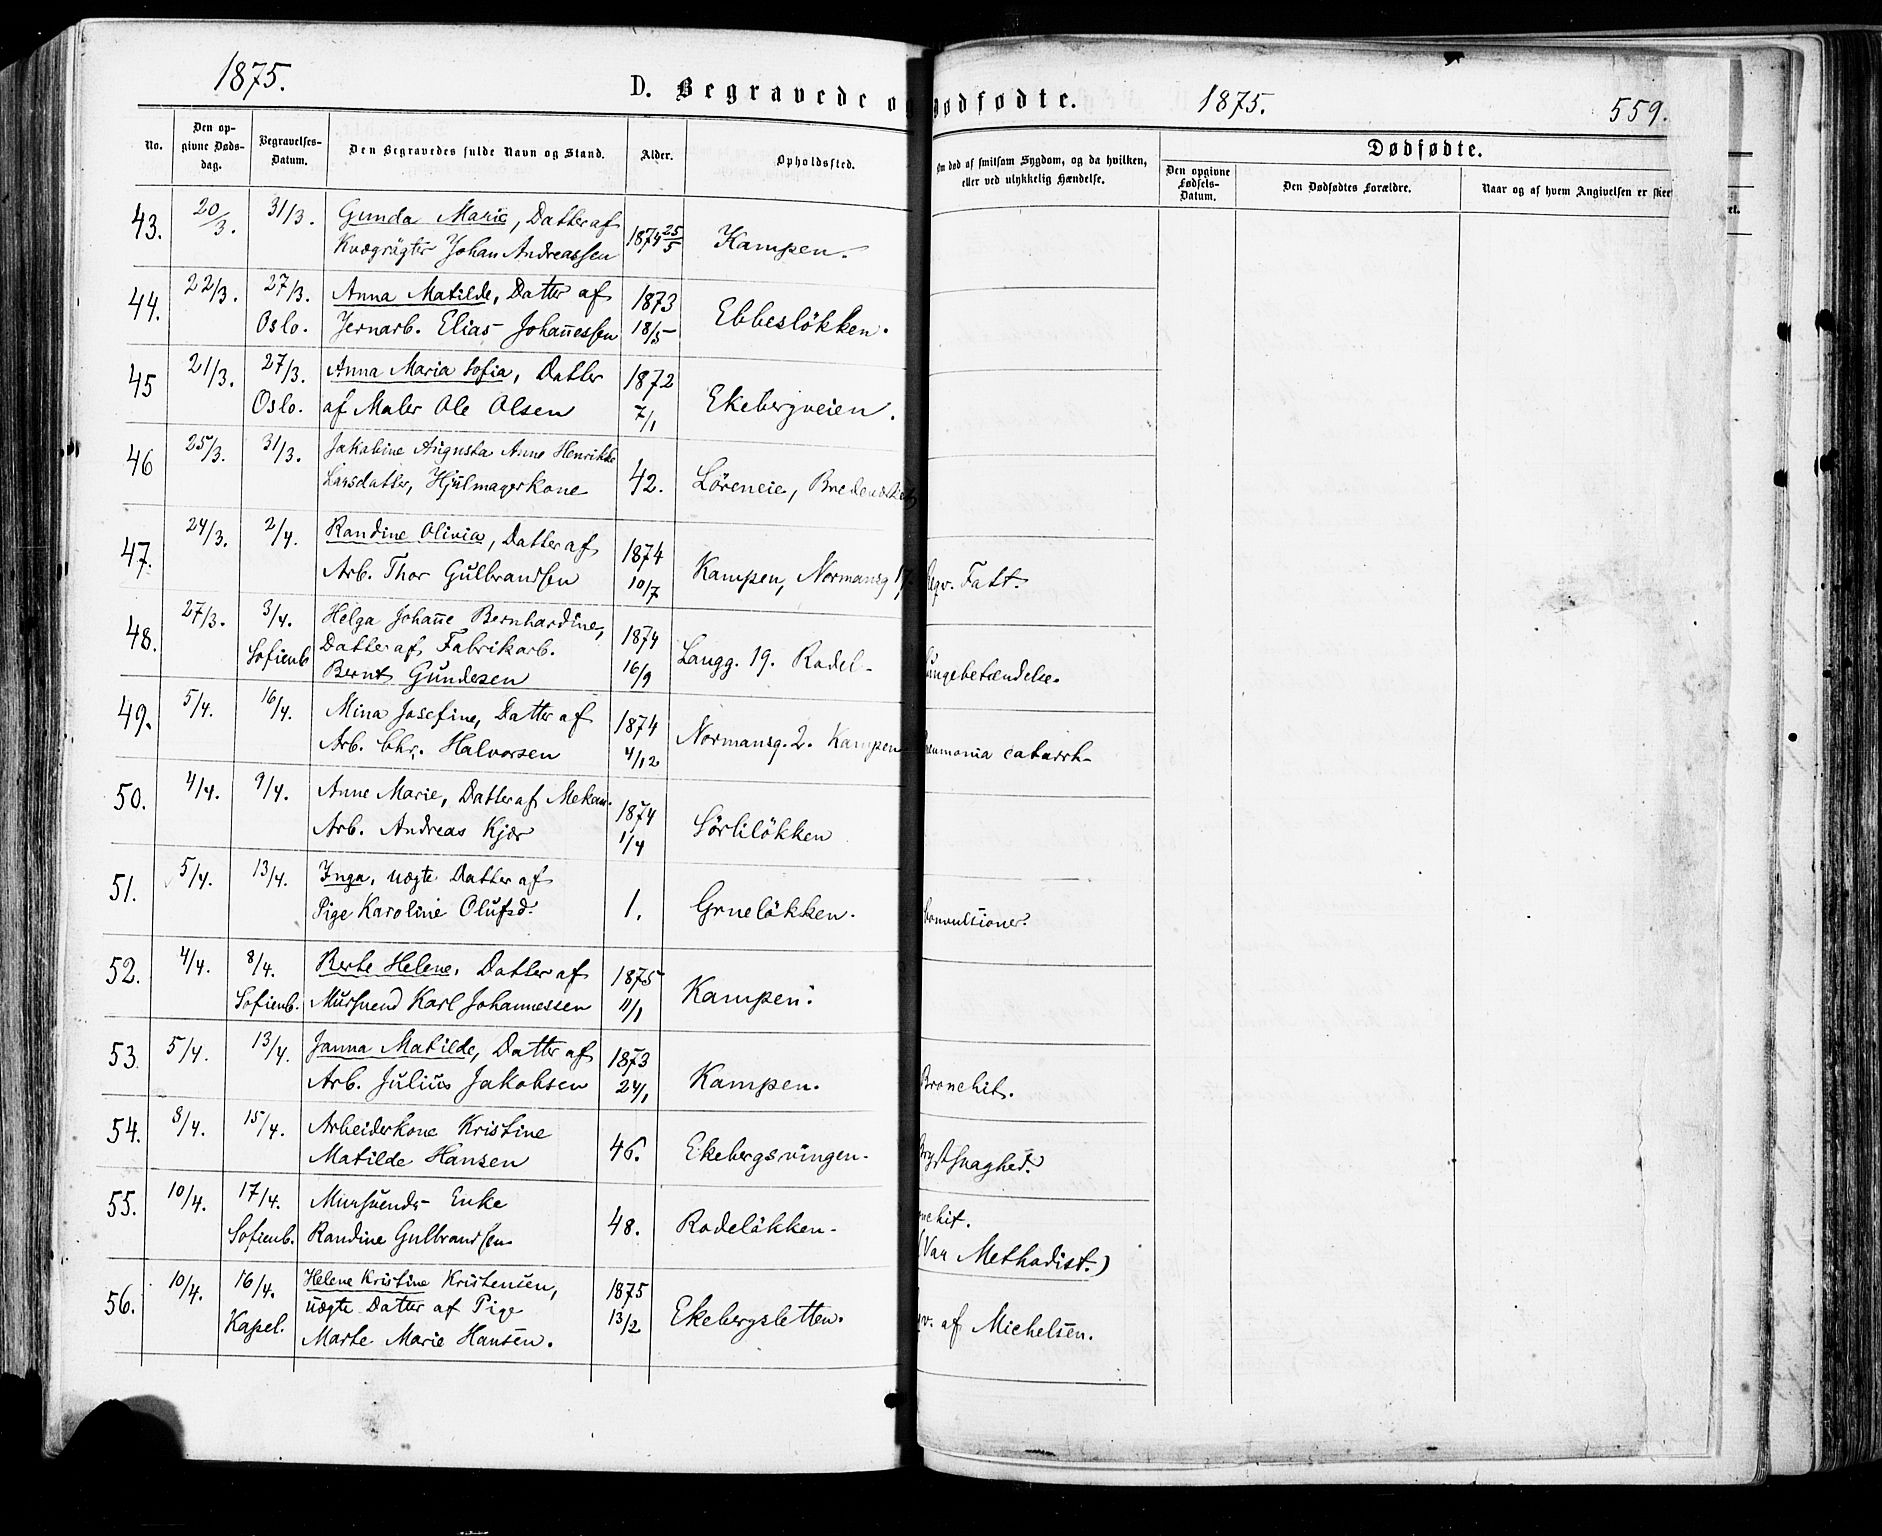 1875.
D. Begravede o
Dødfødte.
1875.
559.
No.
Den op-
givne Døds-
dag.
Begravelses-
Datum.
Den Begravedes fulde Navn og Stand.
Alder.
Opholdssted.
Om død af smitsom Sygdom, og da hvilken,
eller ved ulykkelig Hændelse.
Dødfødte.
Den opgivne
Fødsels-
Datum.
Den Dødfødtes Forældre.
Naar og af hvem Angivelsen er skeet
43. 20/3. 31/3. Gunda Marie, Datter af
Kvægrögter Johan Andreassen 1874 25/5 Kampen.
44. 22/3. 27/3. Anna Matilde, Datter af 1873
Oslo. Jernarb. Elias Johan̄essen 18/5 Ebbesløkken.
45 21/3. 27/3. Anna Maria Sofia, Datter 1872
Oslo. af Maler Ole Olsen 7/1 Ekebergveien.
46 25/3. 31/3. Jakobine Augusta Anne Henrikke
Larsdatter, Hjulmagerkone 42. Löreneie,
47. 24/3. 2/4. Randine Olivia, Datter af 1874
Arb. Thor Gulbrandsen 10/7 Kampen, Normansg Fatt.
48. 27/3. 3/4. Helga Johan̄e Bernhardine,
Sofienb Datter af Fabrikarb. 1874
Bernt Gundesen 16/9 Langg. 19. Rodel- ungebetændelse.
49. 5/4. 16/4. Mina Josefine, Datter af 1874
Arb. Chr. Halvorsen 4/12 Normansg. 2. Kampen neumonia catarrh-
50. 4/4. 9/4. Anne Marie, Datter af Mekan. 1874
Arb. Andreas Kjær 1/4 Sörliløkken
51. 5/4. 13/4. Inga, uægte Datter af
Pige Karoline Olufsd. 1. Grneløkken. Convultioner.
52. 4/4. 8/4. Berte Helene, Datter af 1875
Sofienb. Mursvend Karl Johannessen 11/1 Kampen.
53. 5/4. 13/4. Janna Matilde, Datter af 1873
Arb. Julius Jakobsen 24/1 Kampen. Bronchit.
54. 8/4. 15/4. Arbeiderkone Kristine
Matilde Hansen 46. Ekebergsvingen. Brystsvaghed.
55. 10/4. 17/4. Mursvends Enke
Sofienb. Randine Gulbrandsen 48. Rodeløkken. nchit.
(Var Methodist.)
56. 10/4. 16/4. Helene Kristine Kristensen, 1875
Kapel. uægte Datter af Pige 13/2
Marte Marie Hansen. Ekebergsletten. af Michelsen.